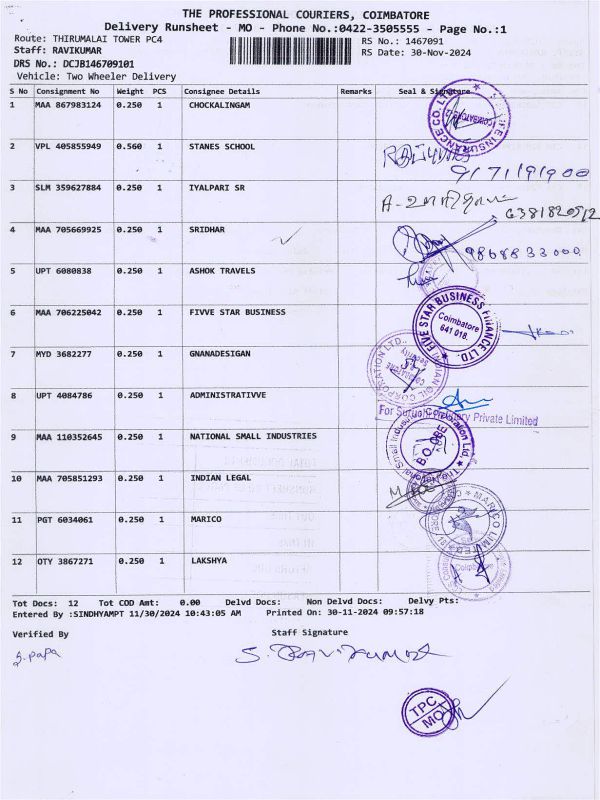 THE PROFESSIONAL COURIERS, COIMBATORE
Delivery Runsheet - MO - Phone No.:0422-3505555 - Page No.:1
Route: THIRUMALAI TOWER PC4 RS No.: 1467091
Staff: RAVIKUMAR RS Date: 30-Nov-2024
DRS No.: DCJB146709101
Vehicle: Two Wheeler Delivery
S No Consignment No Weight PCS Consignee Details Remarks Seal & Signature
1 MAA 867983124 0.250 1 CHOCKALINGAM
2 VPL 405855949 0.560 1 STANES SCHOOL
9171191900
3 SLM 359627884 0.250 1 IYALPARI SR
4 MAA 705669925 0.250 1 SRIDHAR
9868833000
5 UPT 6080838 0.250 1 ASHOK TRAVELS
6 MAA 706225042 0.250 1 FIVVE STAR BUSINESS
FIVE STAR BUSINESS FINANCE LTD.
Coimbatore
641 018.
7 MYD 3682277 0.250 1 GNANADESIGAN
8 UPT 4084786 0.250 1 ADMINISTRATIVVE
Private Limited
9 MAA 110352645 0.250 1 NATIONAL SMALL INDUSTRIES
10 MAA 705851293 0.250 1 INDIAN LEGAL
11 PGT 6034061 0.250 1 MARICO
MARICO LIMITED
12 OTY 3867271 0.250 1 LAKSHYA
Tot Docs: 12 Tot COD Amt: 0.00 Delvd Docs: Non Delvd Docs: Delvy Pts:
Entered By :SINDHYAMPT 11/30/2024 10:43:05 AM Printed On: 30-11-2024 09:57:18
Verified By Staff Signature
S. Papa S. Ravikumar
TPC
MO